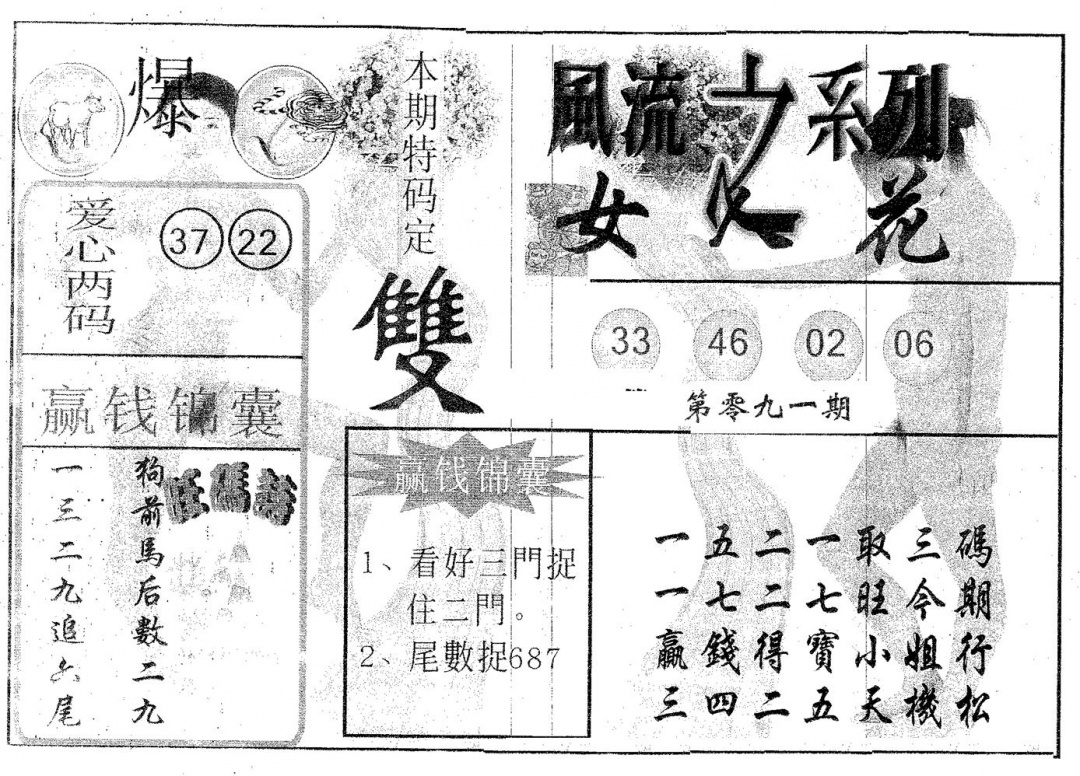 爆
本期特码定
雙
爱心两码
37 22
赢钱锦囊
狗前馬后數二九
一三二九追六尾
赢钱锦囊
1、看好三門捉
住二門。
2、尾數捉687
風流之系列
女人花
33 46 02 06
第零九一期
一五二一取三碼
一七二七旺今期
贏錢得寶小姐行
三四二五天機松